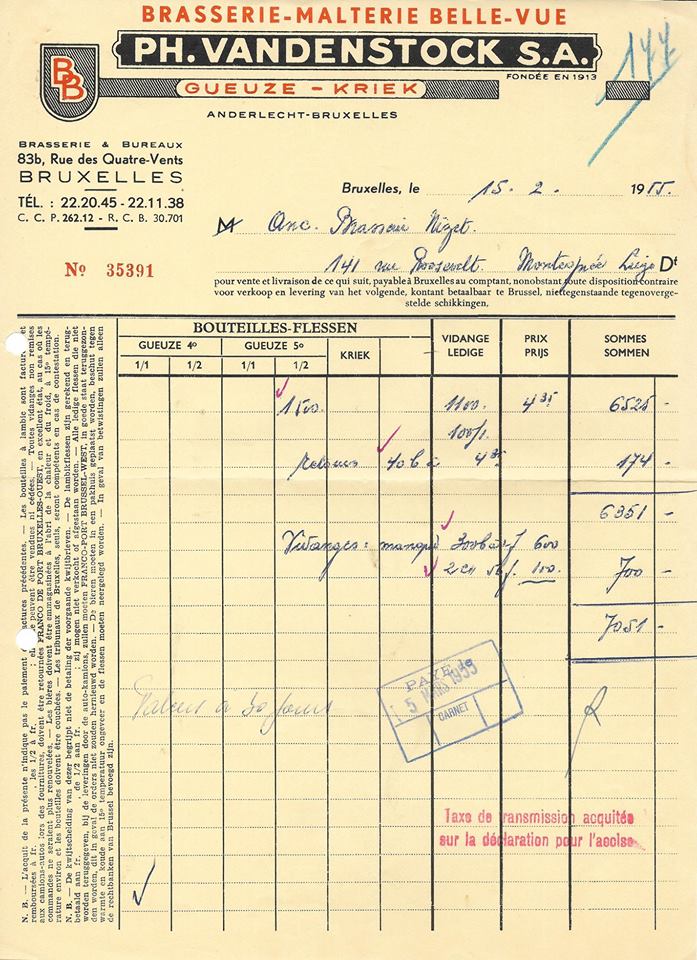 BRASSERIE-MALTERIE BELLE-VUE
PH. VANDENSTOCK S.A.
FONDÉE EN 1913
177
BB
GUEUZE - KRIEK
ANDERLECHT-BRUXELLES
BRASSERIE & BUREAUX
83b, Rue des Quatre-Vents
BRUXELLES
TÉL. : 22.20.45 - 22.11.38
C. C. P. 262.12 - R. C. B. 30.701
Nº 35391
Bruxelles, le 15. 2. 1955.
M Anc. Brasserie Nizet.
141 rue Roosevelt. Montegnée Liège Dt
pour vente et livraison de ce qui suit, payable à Bruxelles au comptant, nonobstant toute disposition contraire
voor verkoop en levering van het volgende, kontant betaalbaar te Brussel, niettegenstaande tegenoverge-
stelde schikkingen.
BOUTEILLES-FLESSEN
GUEUZE 4º GUEUZE 5º KRIEK VIDANGE LEDIGE PRIX PRIJS SOMMES SOMMEN
1/1 1/2 1/1 1/2
1500. 1100. 4 35 6525 -
100/1.
Retours 40 b à 4 35 174 -
6351 -
Vidanges : manqué 300 b à 2 f 600
2 cs 50 f. 100. 700 -
7051 -
PAYÉ le
15 MARS 1955
CARNET
Valeur à 30 jours
Taxe de transmission acquittée
sur la déclaration pour l'accise
N. B. — L'acquit de la présente n'indique pas le paiement factures précédentes. — Les bouteilles à lambic sont factur et
remboursées à fr. les 1/2 à fr. : el e peuvent être vendues ni cédées. — Toutes vidanges non remises
aux camions-autos lors des fournitures, doivent être retournées FRANCO DE PORT BRUXELLES-OUEST, en excellent état, au cas où les
commandes ne seraient plus renouvelées. — Les bières doivent être emmagasinées à l'abri de la chaleur et du froid, à 15º tempé-
rature environ et les bouteilles doivent être couchées. — Les tribunaux de Bruxelles, seuls, seront compétents en cas de contestation.
N. B. — De kwijtscheiding van dezer begrijpt niet de betaling der voorgaande kwijtbrieven. — De lambikflessen zijn gerekend en terug-
betaald aan fr. de 1/2 aan fr. : zij mogen niet verkocht of afgestaan worden. — Alle ledige flessen die niet
worden teruggegeven, bij de leveringen door de auto-kamions, zullen moeten FRANCO-PORT BRUSSEL-WEST, in goede staat teruggezon-
den worden, dit in geval de orders niet zouden hernieuwd worden. — De bieren moeten in een pakhuis geplaatst worden, beschut tegen
warmte en koude aan 15º temperatuur ongeveer en de flessen moeten neergelegd worden. — In geval van betwistingen zullen alleen
de rechtbanken van Brussel bevoegd zijn.